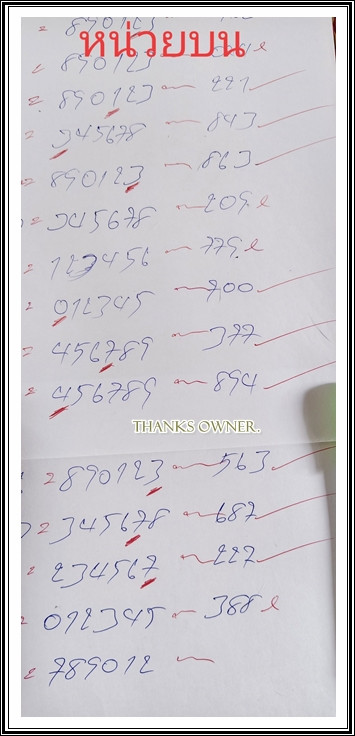 หน่วยบน
890123
890123 ~ 221
345678 ~ 843
890123 ~ 863
345678 ~ 209.
123456 ~ 779.
012345 ~ 900
456789 ~ 377
456789 ~ 894
THANKS OWNER.
890123 ~ 563
345678 ~ 687
234567 ~ 227
012345 ~ 388
789012 ~